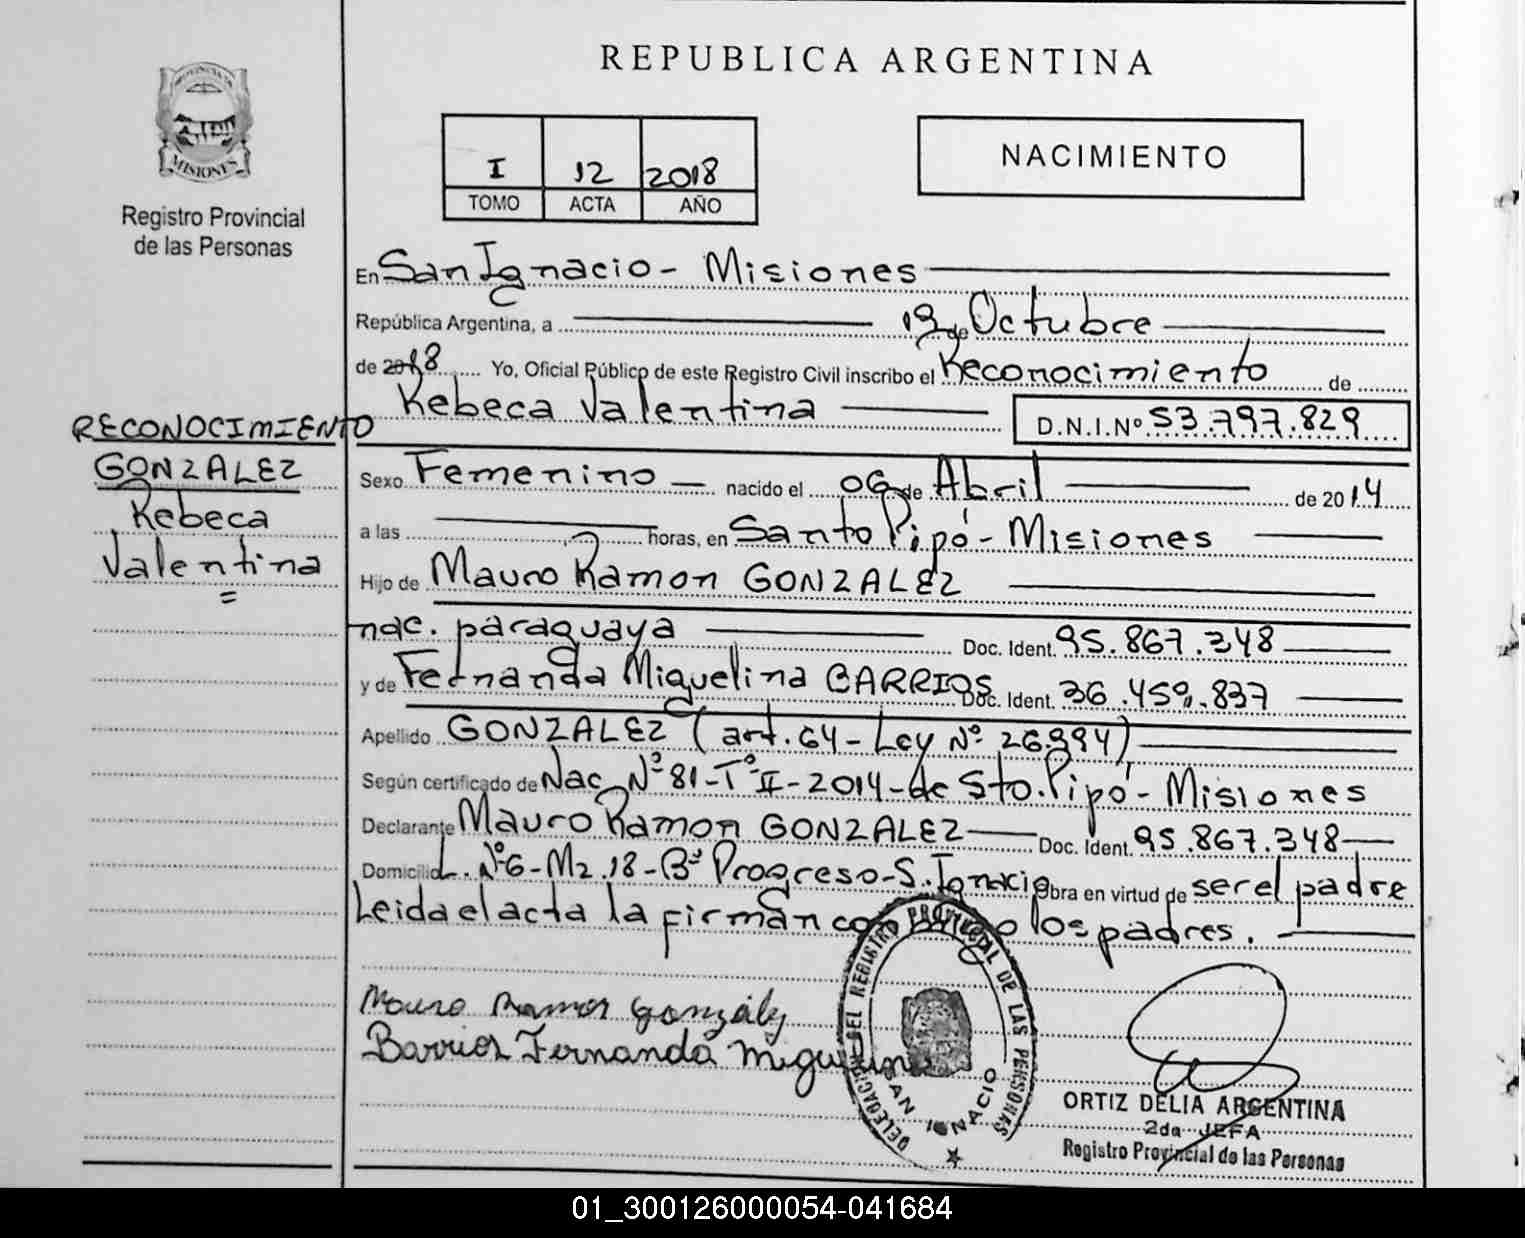 REPUBLICA ARGENTINA
PROVINCIA DE
MISIONES
Registro Provincial
de las Personas
I 12 2018
TOMO ACTA AÑO
NACIMIENTO
En San Ignacio - Misiones
República Argentina, a 19 de Octubre
de 2018 Yo, Oficial Público de este Registro Civil inscribo el Reconocimiento de
Rebeca Valentina D.N.I.Nº 53.797.829
RECONOCIMIENTO
GONZALEZ
Rebeca
Valentina
Sexo Femenino nacido el 06 de Abril de 2014
a las horas, en Santo Pipó - Misiones
Hijo de Mauro Ramon GONZALEZ
nac. paraguaya Doc. Ident. 95.867.348
y de Fernanda Miguelina BARRIOS Doc. Ident. 36.459.837
Apellido GONZALEZ (art. 64 - Ley Nº 26.994)
Según certificado de Nac. Nº 81 - Tº II - 2014 - de Sto. Pipó - Misiones
Declarante Mauro Ramon GONZALEZ Doc. Ident. 95.867.348
Domicilio L. Nº 6 - Mz. 18 - Bº Progreso - S. Ignacio Obra en virtud de ser el padre
Leida el acta la firman conmigo los padres.
Mauro Ramon Gonzalez
Barrios Fernanda Miguelina
DELEGACION DEL REGISTRO PROVINCIAL DE LAS PERSONAS
SAN IGNACIO
ORTIZ DELIA ARGENTINA
2da JEFA
Registro Provincial de las Personas
01_300126000054-041684